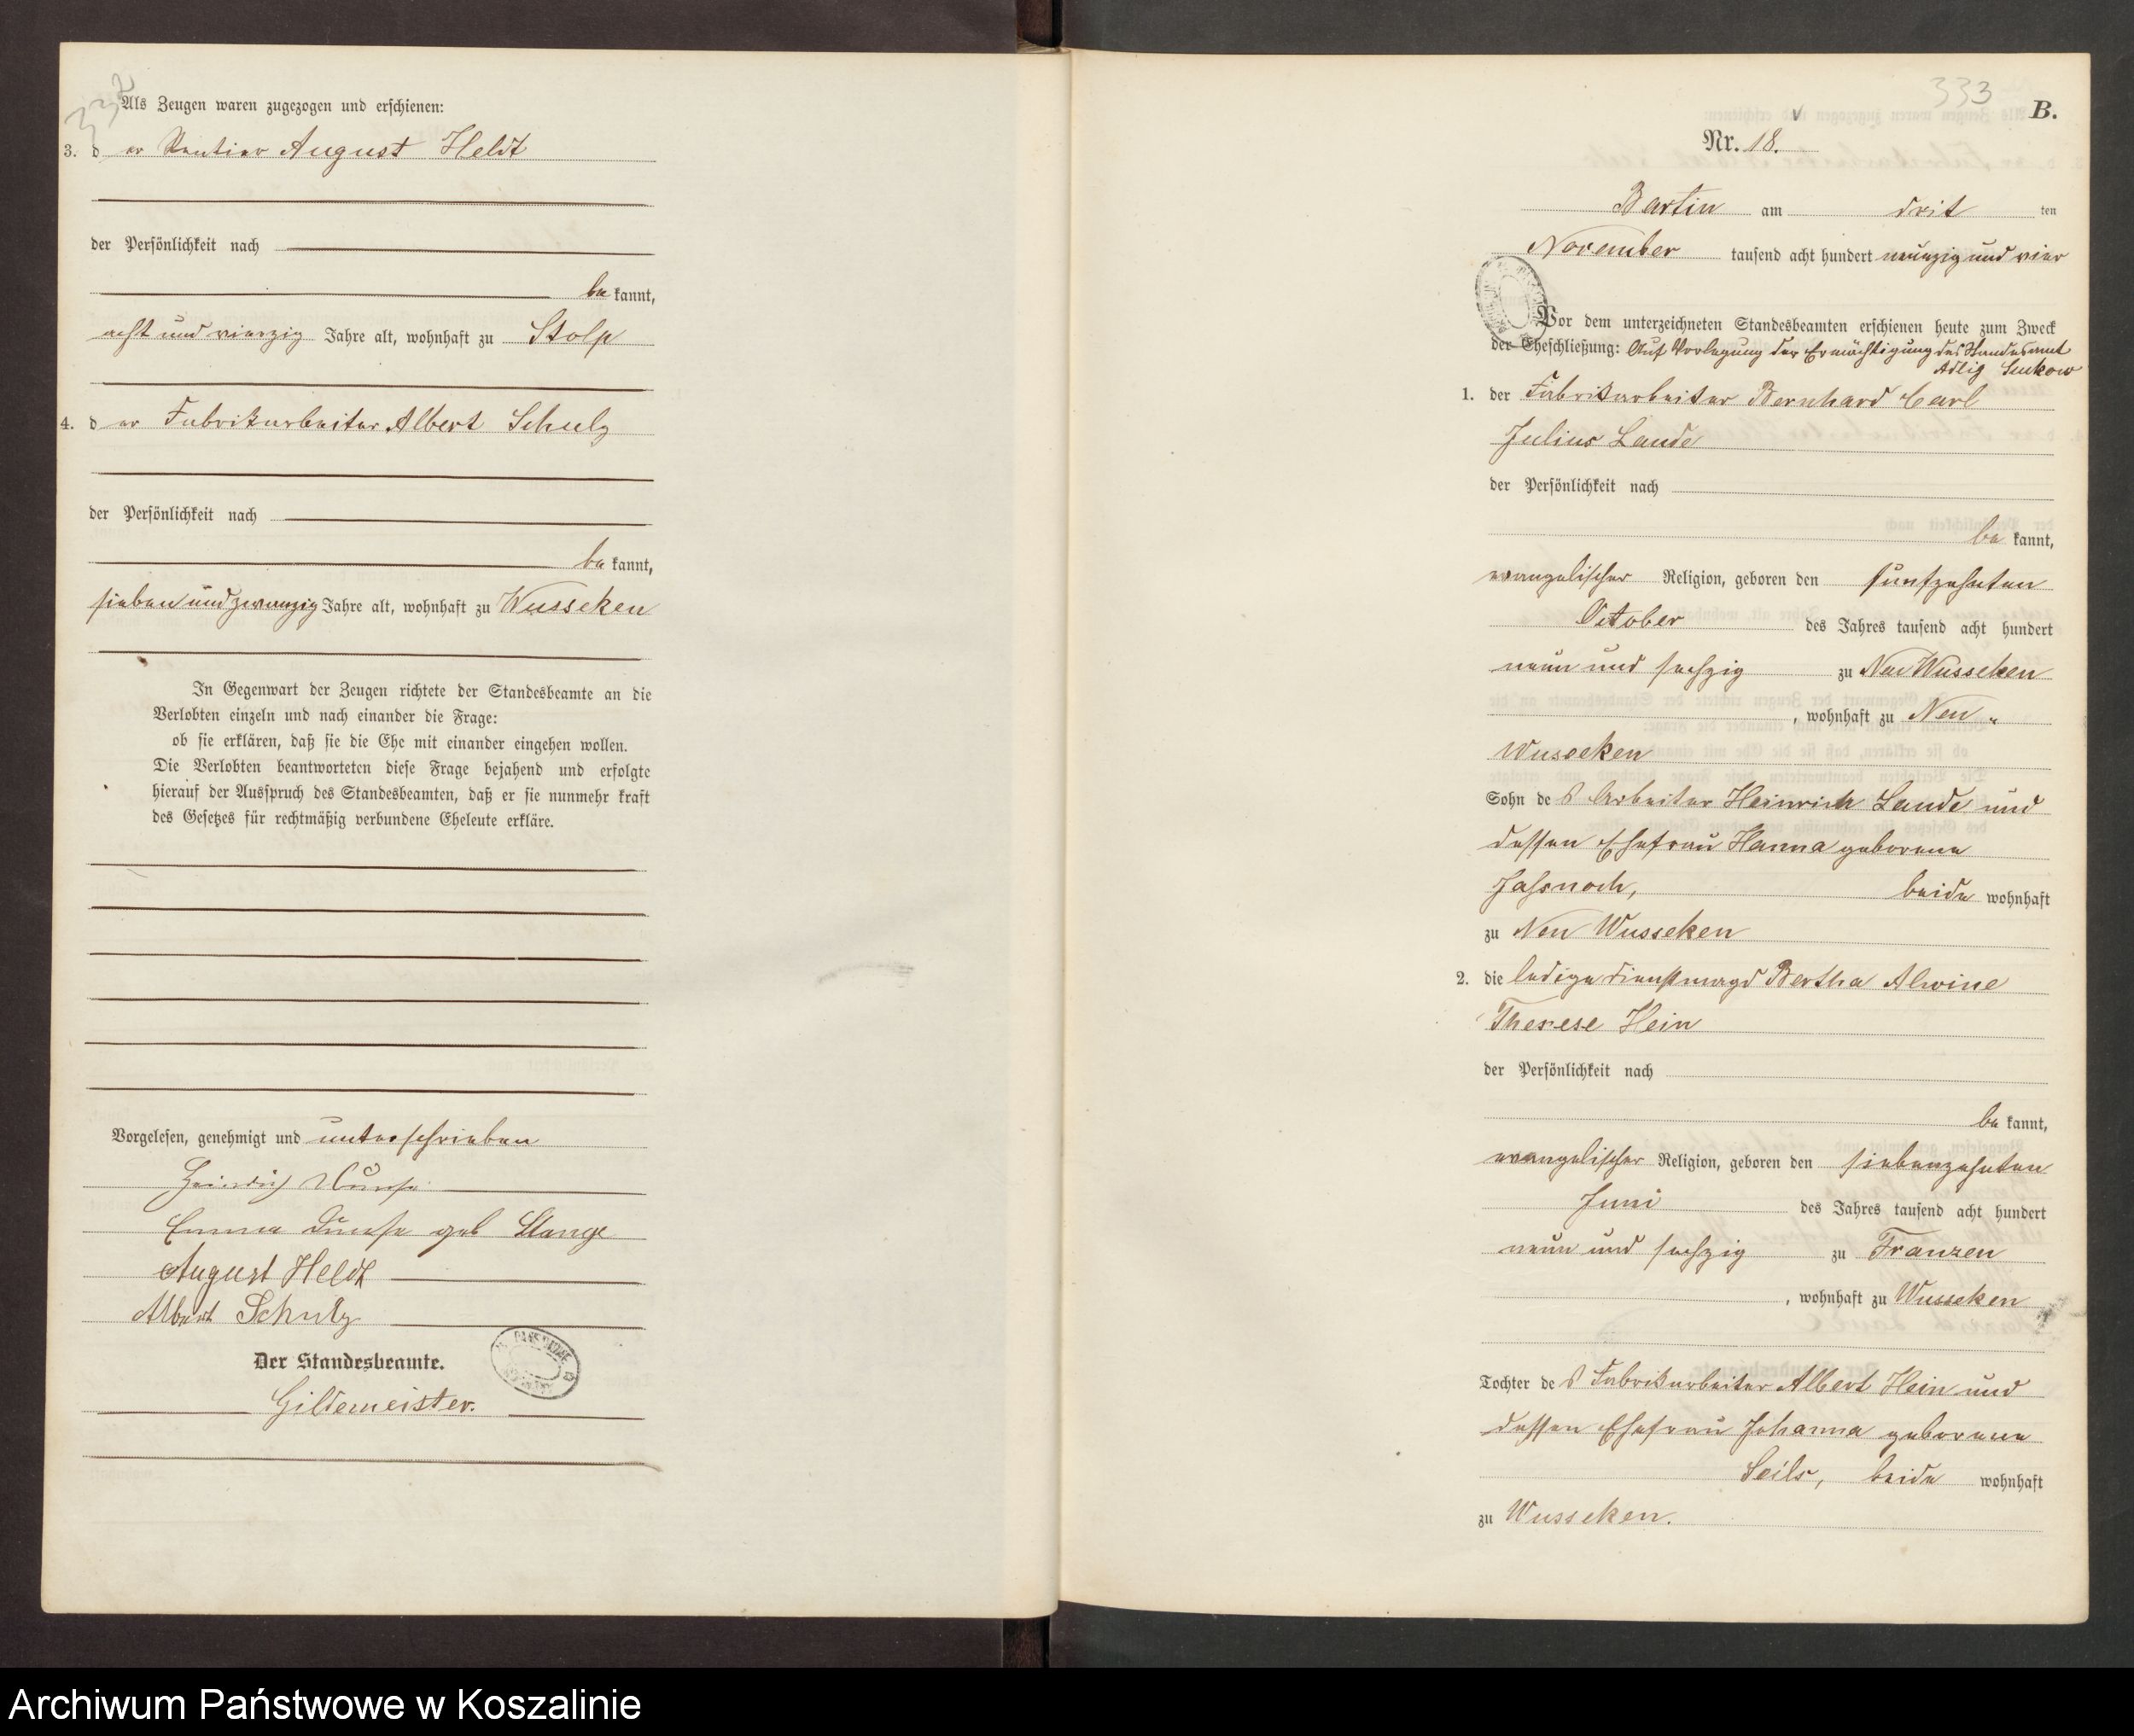 332
Als Zeugen waren zugezogen und erschienen:
3. der Rentier August Heldt
der Persönlichkeit nach
bekannt,
acht und vierzig Jahre alt, wohnhaft zu Stolp
4. der Fabrikarbeiter Albert Schulz
der Persönlichkeit nach
bekannt,
sieben und zwanzig Jahre alt, wohnhaft zu Wusseken
In Gegenwart der Zeugen richtete der Standesbeamte an die
Verlobten einzeln und nach einander die Frage:
ob sie erklären, daß sie die Ehe mit einander eingehen wollen.
Die Verlobten beantworteten diese Frage bejahend und erfolgte
hierauf der Ausspruch des Standesbeamten, daß er sie nunmehr kraft
des Gesetzes für rechtmäßig verbundene Eheleute erkläre.
Vorgelesen, genehmigt und unterschrieben
Heinrich
Emma geb Stange
August Heldt
Albert Schulz
Der Standesbeamte.
Gildemeister.
333
B.
Nr. 18.
Bartin am dritten
November tausend acht hundert neunzig und vier
Vor dem unterzeichneten Standesbeamten erschienen heute zum Zweck
der Eheschließung: Auf Vorlegung der Ermächtigung des Standesamt
Adlig Suckow
1. der Fabrikarbeiter Bernhard Carl
Julius Laude
der Persönlichkeit nach
bekannt,
evangelischer Religion, geboren den fünfzehnten
October des Jahres tausend acht hundert
neun und sechzig zu Neu Wusseken
, wohnhaft zu Neu-
Wusseken
Sohn des Arbeiter Heinrich Laude und
dessen Ehefrau Hanna geborene
Jassnoch, beide wohnhaft
zu Neu Wusseken
2. die ledige Dienstmagd Bertha Alwine
Therese Hein
der Persönlichkeit nach
bekannt,
evangelischer Religion, geboren den siebenzehnten
Juni des Jahres tausend acht hundert
neun und sechzig zu Franzen
, wohnhaft zu Wusseken
Tochter des Fabrikarbeiter Albert Hein und
dessen Ehefrau Johanna geborene
Seils, beide wohnhaft
zu Wusseken.
Archiwum Państwowe w Koszalinie